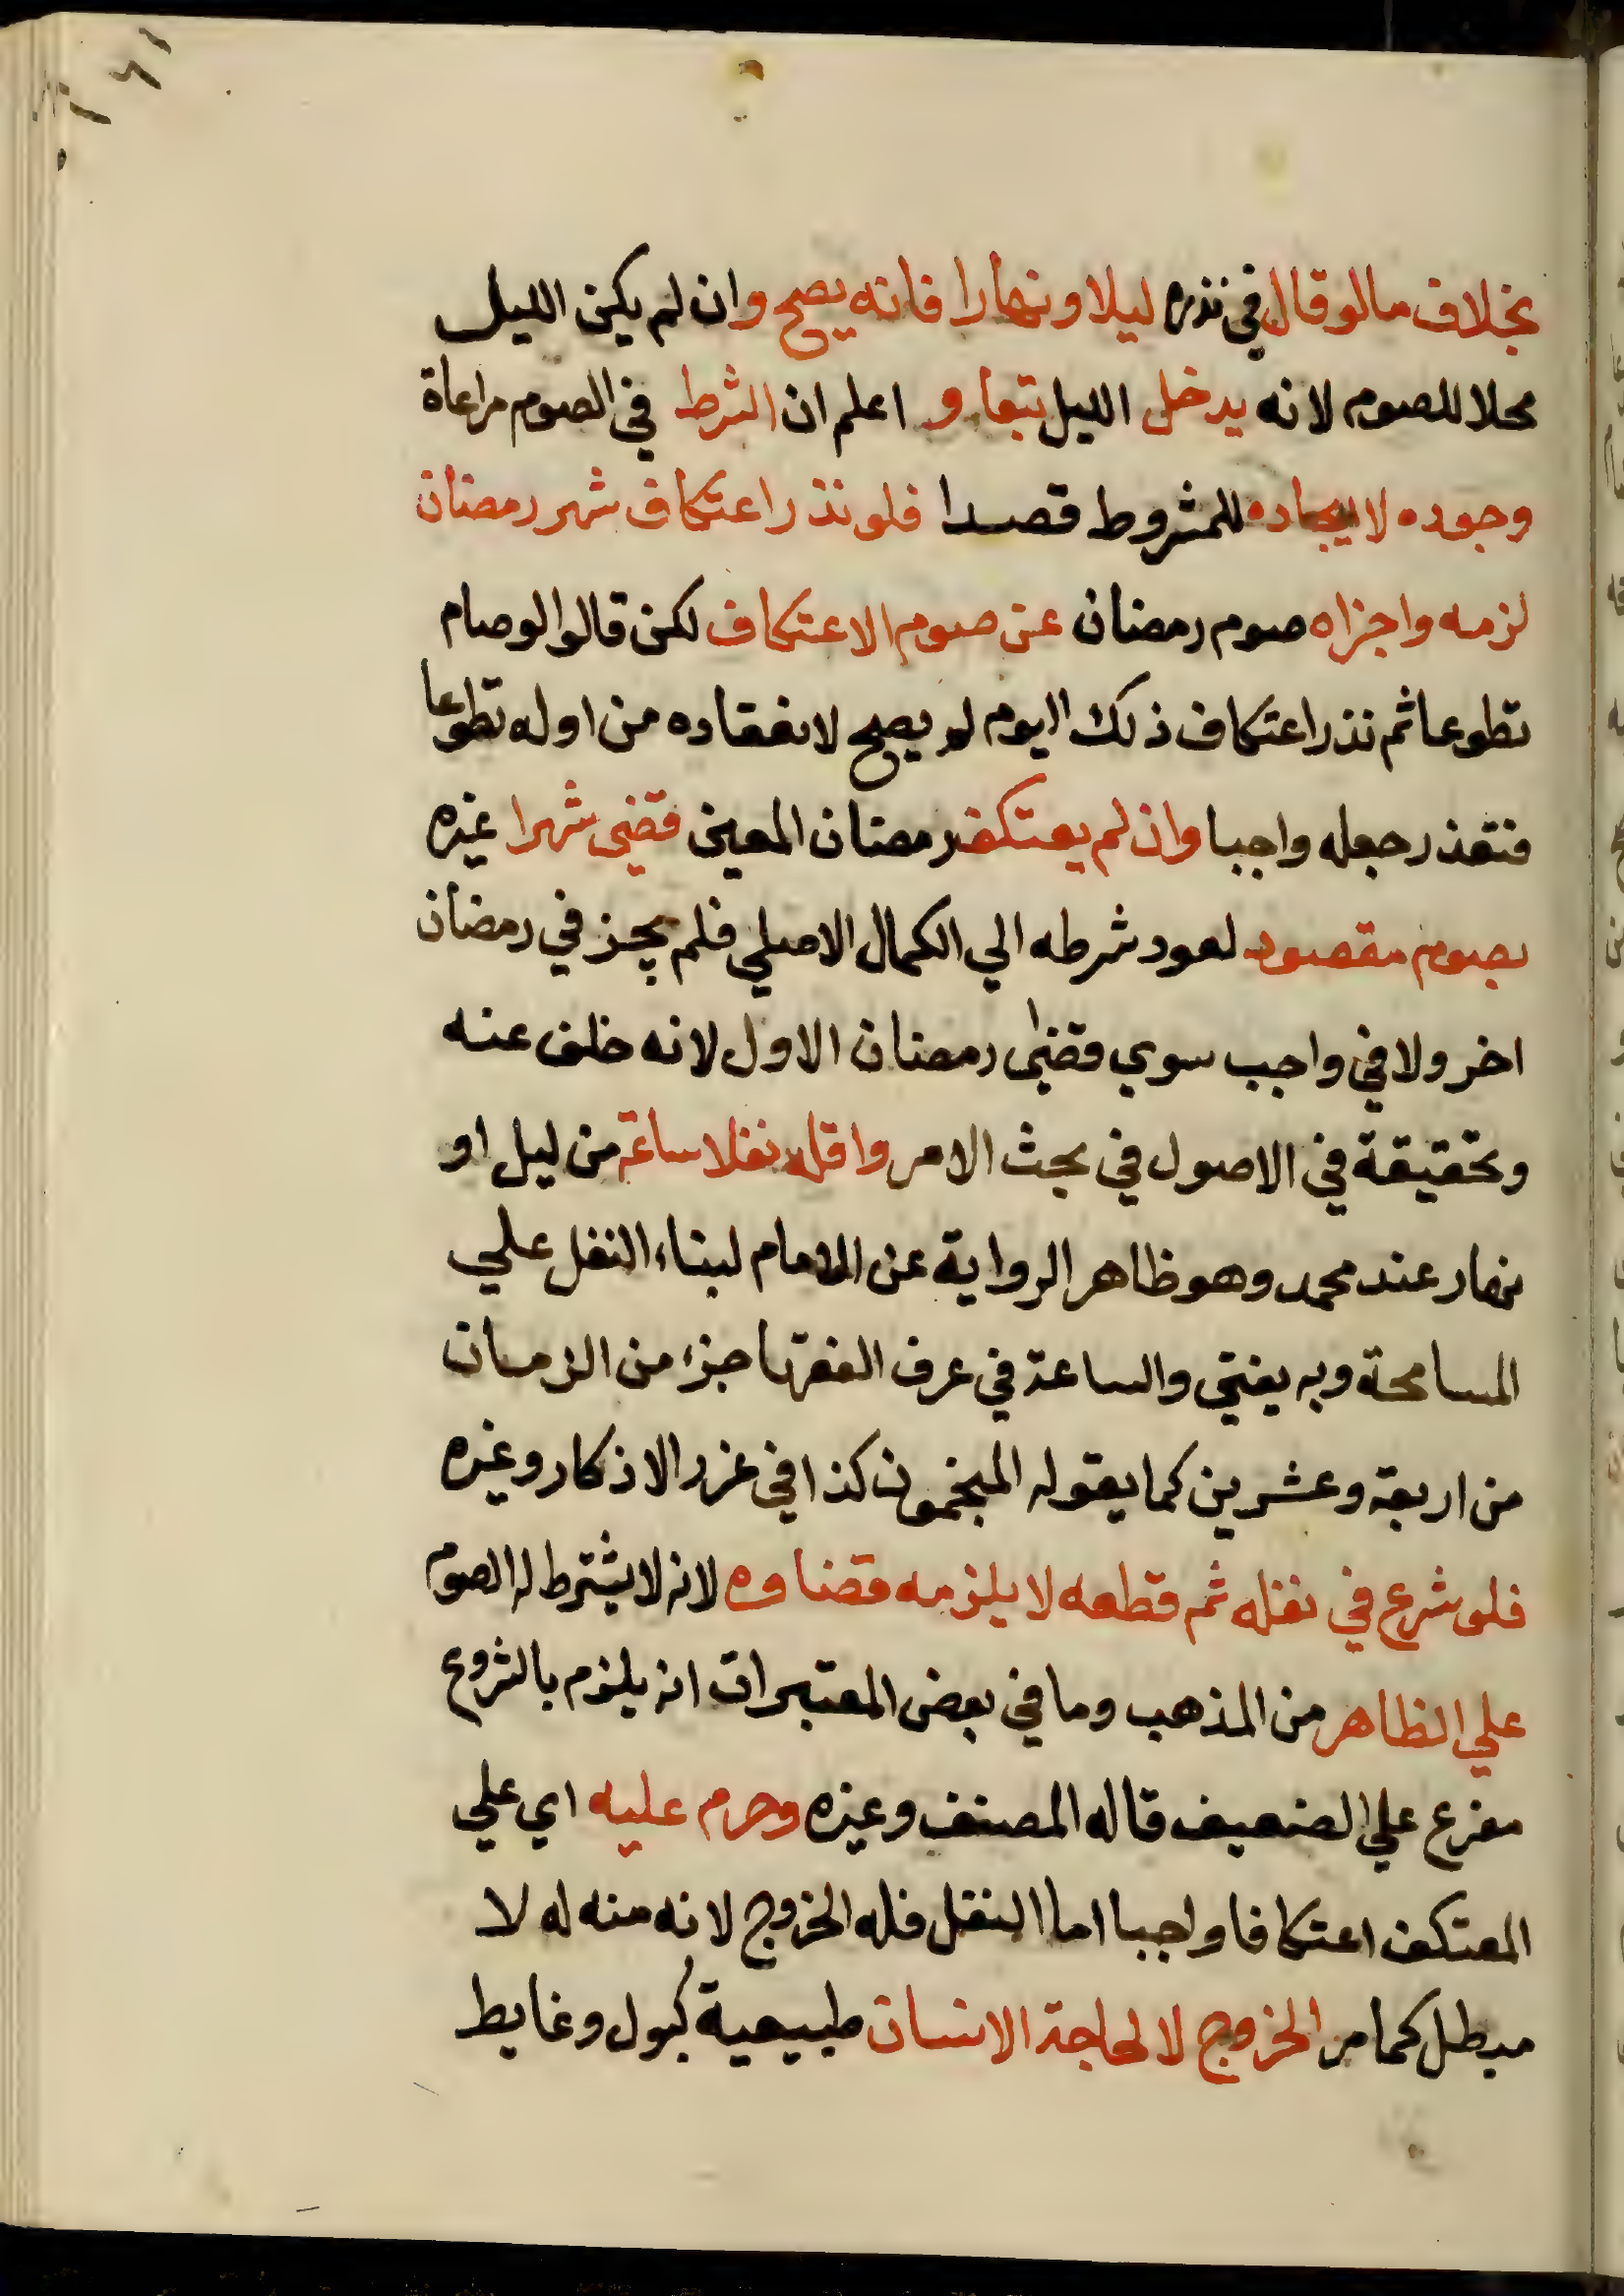 بخلاف مالو قال في نذره ليلا ونهارا فانه يصح وان لم يكن الليل
محلا للصوم لانه يدخل الليل تبعا و اعلم ان الشرط في الصوم مراعاة
وجوده لا ايجاده للمشروط قصدا فلو نذر اعتكاف شهر رمضان
لزمه واجزاه صوم رمضان عن صوم الاعتكاف لكن قالوا لوصام
تطوعا ثم نذر اعتكاف ذلك اليوم لم يصح لانعقاده من اوله تطوعا
فتعذر جعله واجبا وان لم يعتكف رمضان المعين قضي شهرا غيره
بصوم مقصود لعود شرطه الي الكمال الاصلي فلم يجز في رمضان
اخر ولا في واجب سوي قضي رمضان الاول لانه خلف عنه
وتحقيقة في الاصول في بحث الامر واقله نفلا ساعة من ليل او
نهار عند محمد وهو ظاهر الرواية عن الامام لبناء النفل علي
المسامحة وبه يفتي والساعة في عرف الفقها جزء من الزمان
من اربعة وعشرين كما يقوله المنجمون كذا في غرر الاذكار وغيره
فلو شرع في نفله ثم قطعه لا يلزمه قضاوه لانه لا يشترط له الصوم
علي الظاهر من المذهب وما في بعض المعتبرات انه يلزم بالشروع
مفرع علي الضعيف قاله المصنف وغيره وحرم عليه اي علي
المعتكف اعتكافا واجبا اما النفل فله الخروج لانه منه له لا
مبطل كما مر الخروج لا لحاجة الانسان طبيعية كبول وغايط